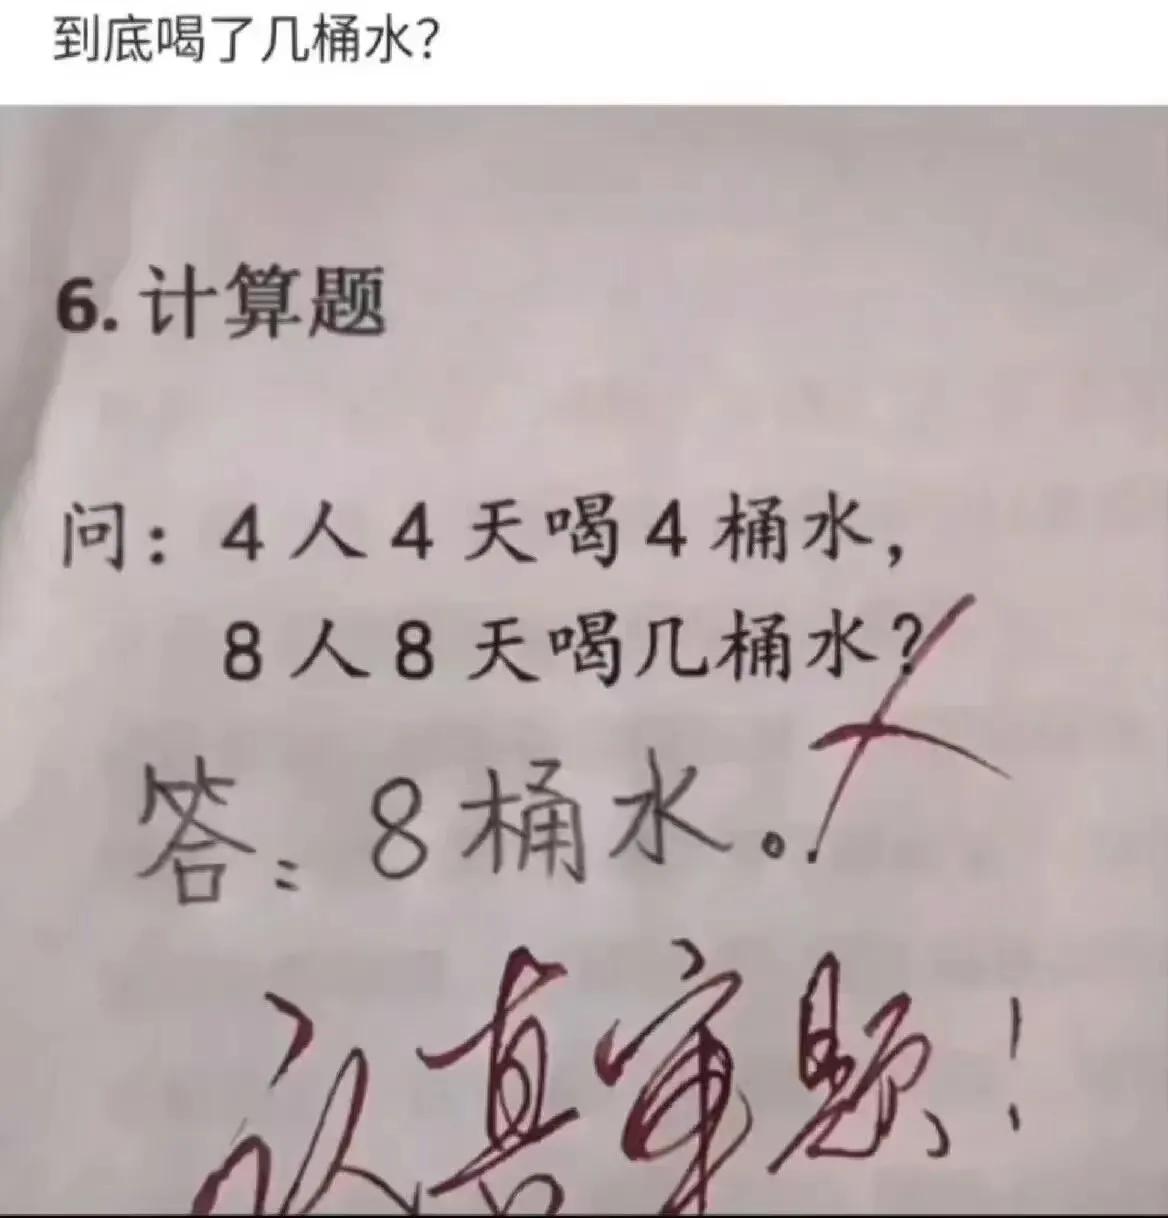 到底喝了几桶水？
6. 计算题
问：4 人 4 天喝 4 桶水，
8 人 8 天喝几桶水？
答：8 桶水。
认真审题！